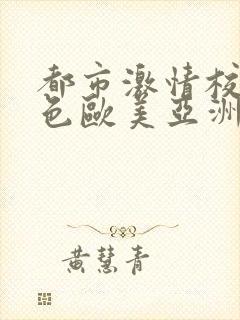 都市激情校
色歐美亞洲
黃慧青